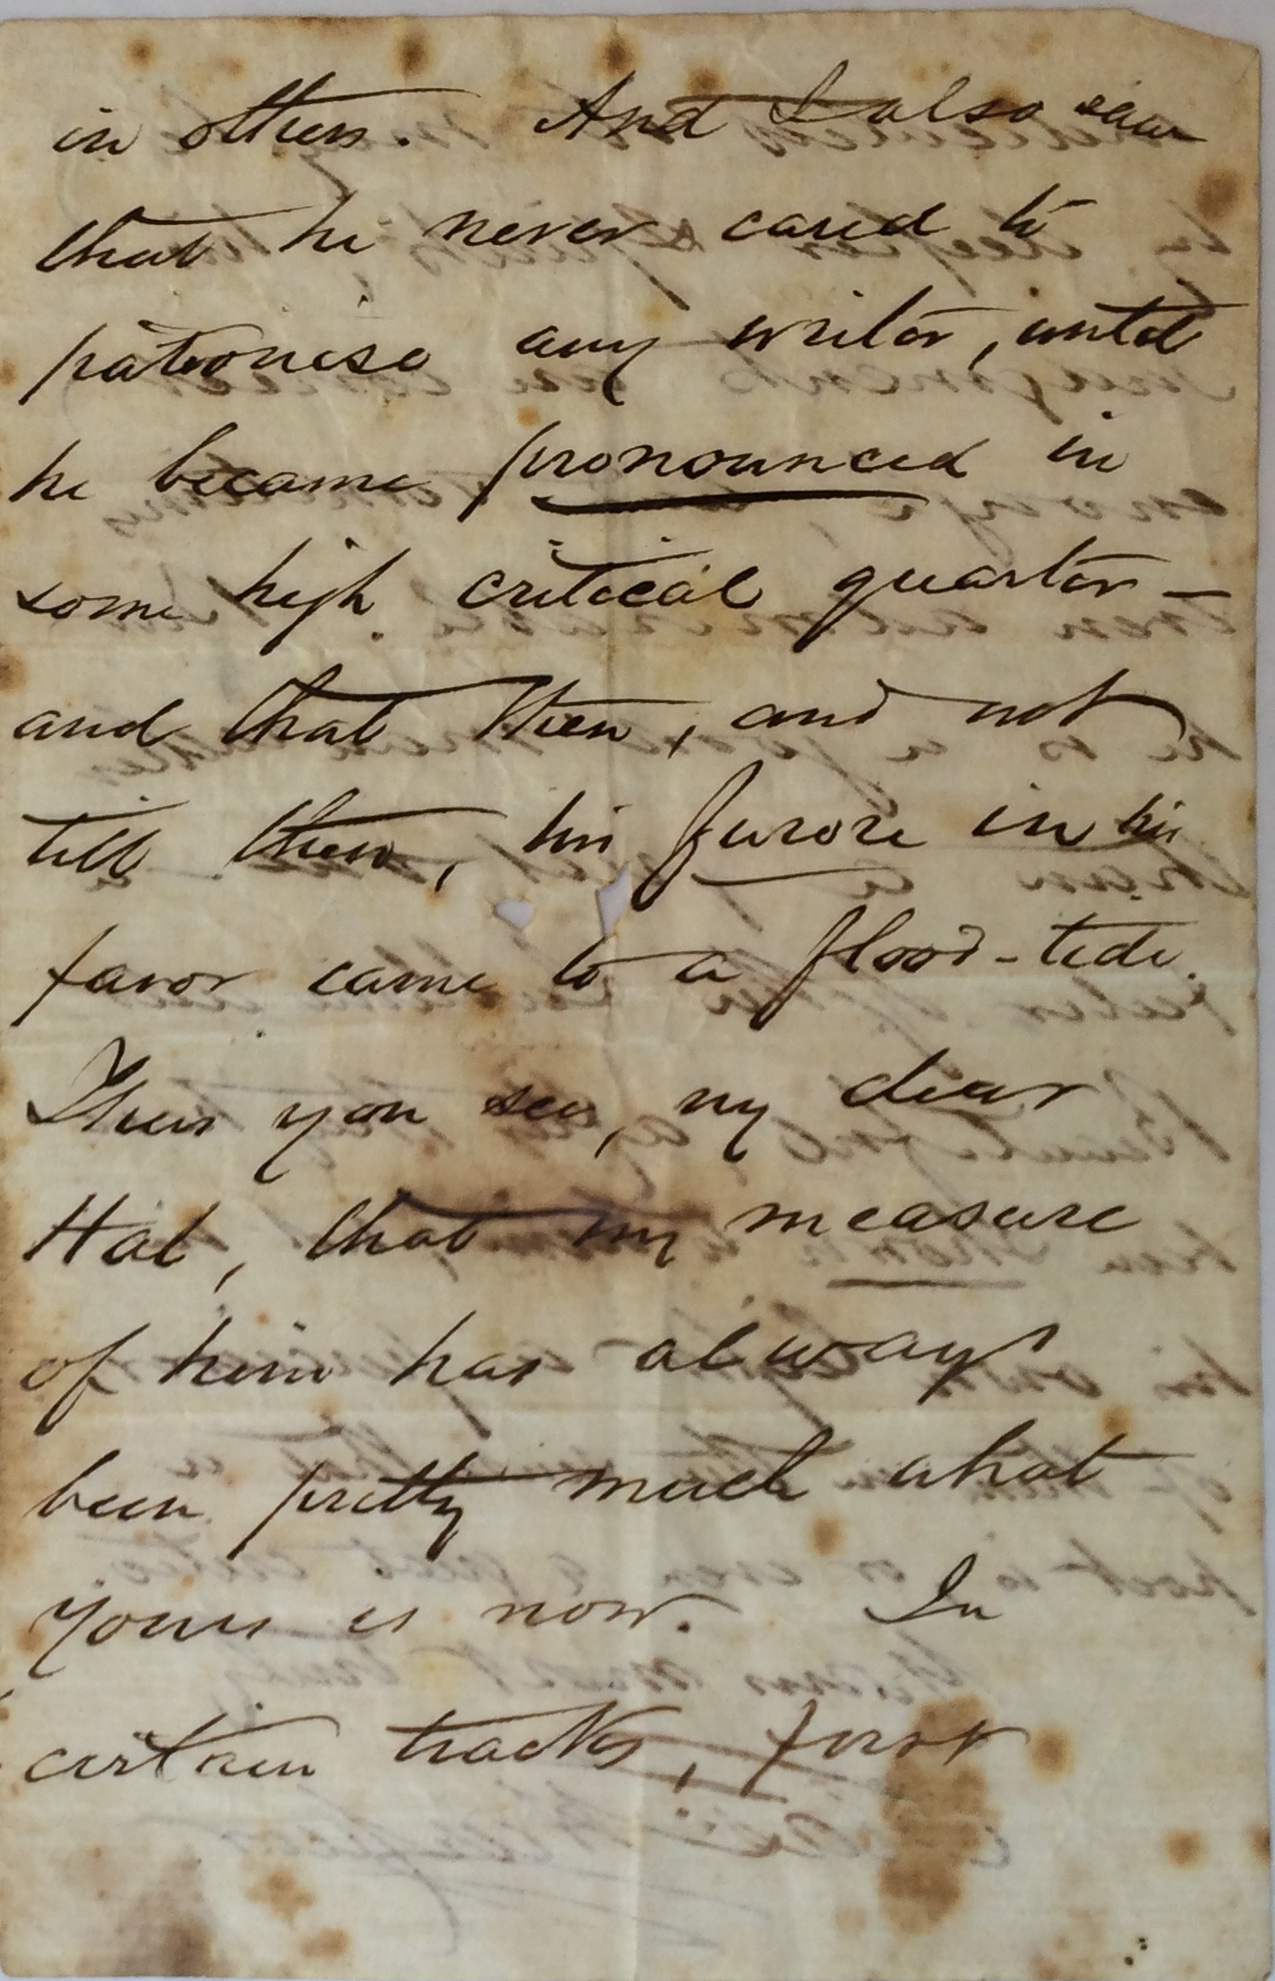 in others. And I also saw
that he never cared to
patronise any writer, until
he became pronounced in
some high critical quarter —
and that then, and not
till then, his furore in his
favor came to a flood-tide.
Thus you see, my dear
Hal, that my measure
of him has always
been pretty much what
yours is now. In
certain tracks, first